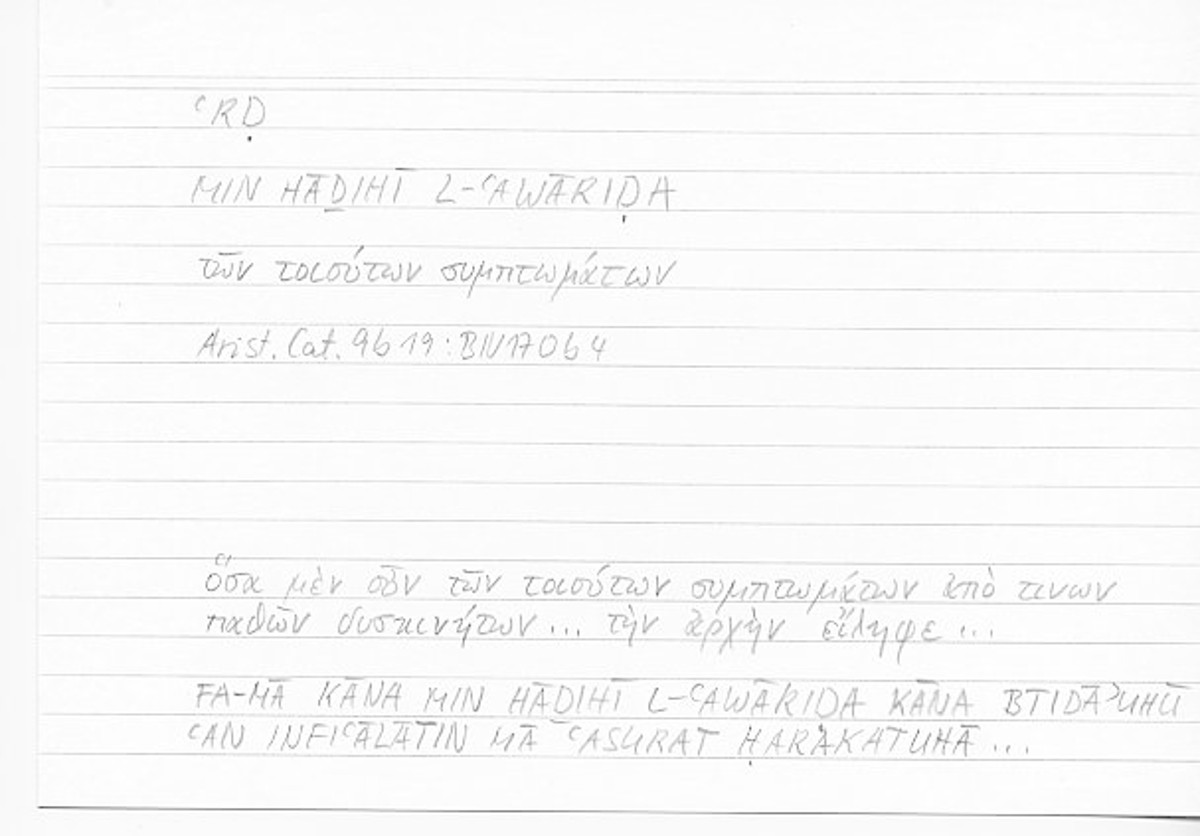 ʿRḌ
MIN HĀḎIHĪ L-ʿAWĀRIḌA
τῶν τοιούτων συμπτωμάτων
Arist. Cat. 9b19 : BN170b4
ὅσα μὲν οὖν τῶν τοιούτων συμπτωμάτων ἀπὸ τινων
παθῶν δυσκινήτων ... τὴν ἀρχὴν εἴληφε ...
FA-MĀ KĀNA MIN HĀDIHĪ L-ʿAWĀRIDA KĀNA BTIDĀʾUHŪ
ʿAN INFIʿĀLĀTIN MĀ ʿASURAT ḤARAKATUHĀ ...